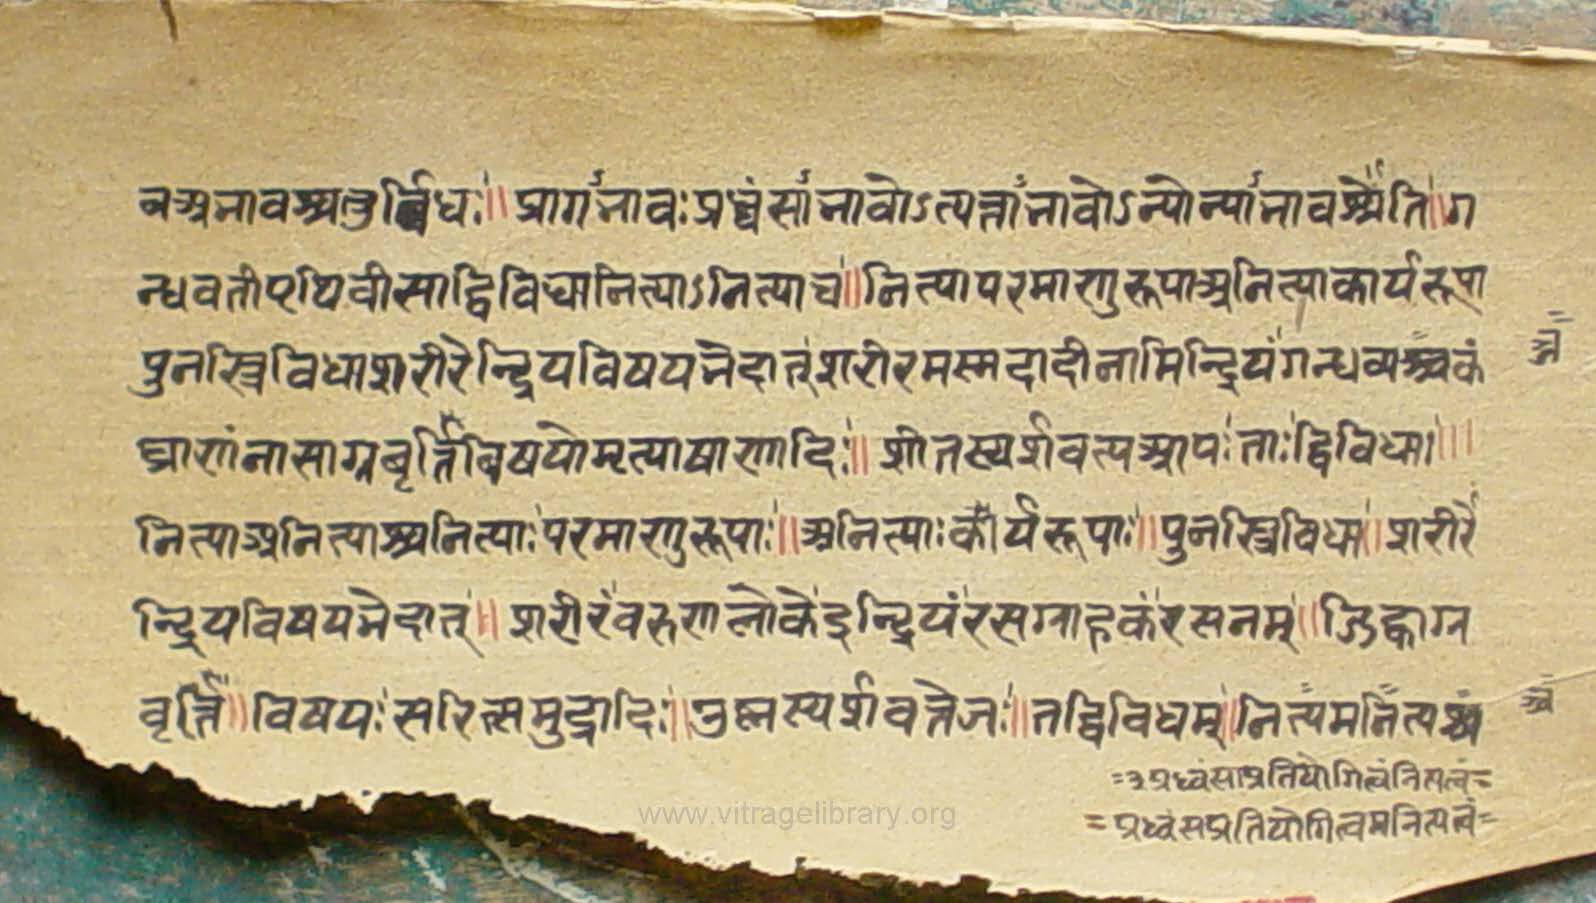 व अभावश्चतुर्विधः ॥ प्रागभावः प्रध्वंसाभावोऽत्यन्ताभावोऽन्योन्याभावश्चेति ॥ ग
न्धवती पृथिवी सा द्विविधा नित्याऽनित्या च ॥ नित्या परमाणुरूपा अनित्या कार्यरूपा
पुनस्त्रिविधा शरीरेन्द्रियविषयभेदात् शरीरमस्मदादीनामिन्द्रियं गन्धव्यञ्जकं
घ्राणं नासाग्रवृर्त्ति विषयो मृत्पाषाणादिः ॥ शीतस्पर्शवत्य आपः ताः द्विविधा ॥
नित्या अनित्याश्च नित्याः परमाणुरूपाः ॥ अनित्याः कार्यरूपाः ॥ पुनस्त्रिविधा ॥ शरीरे
न्द्रियविषयभेदात् ॥ शरीरं वरुणलोके इन्द्रियं रसग्राहकं रसनम् ॥ जिह्वाग्र
वृर्त्ति ॥ विषयः सरित्समुद्रादिः ॥ उष्णस्पर्शवत्तेजः ॥ तद्द्विविधम् ॥ नित्यमनित्यञ्च
=प्रध्वंसाप्रतियोगित्वं नित्यत्वं=
=प्रध्वंसप्रतियोगित्वमनित्यत्वं=
www.vitragelibrary.org